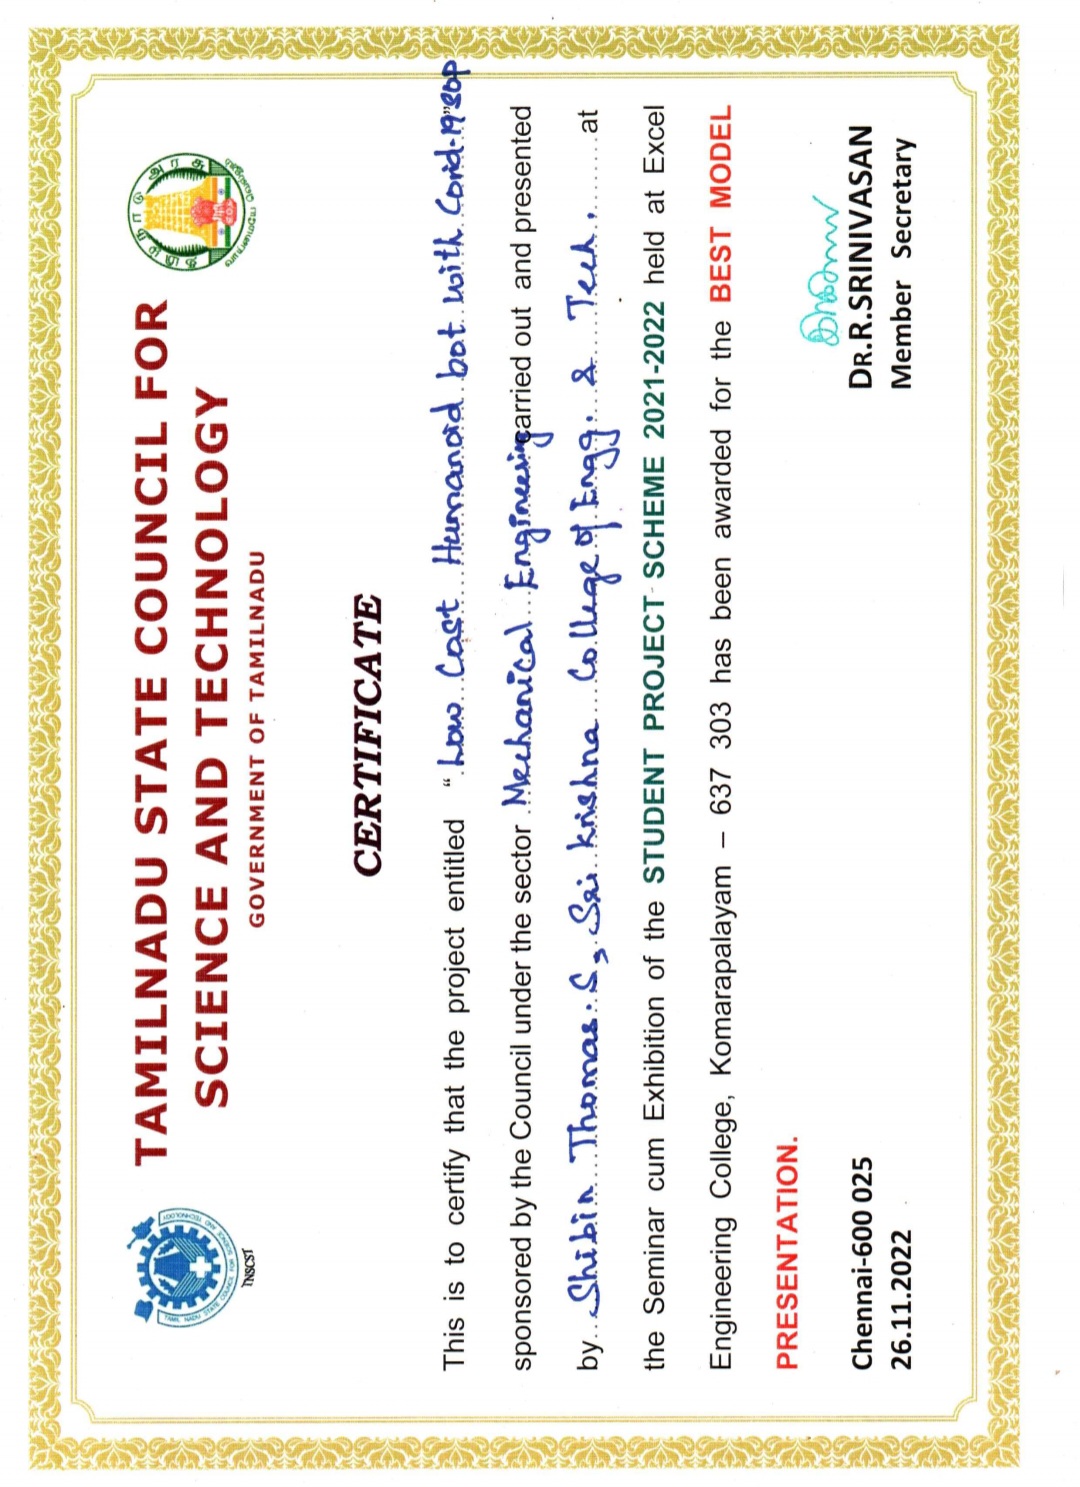 TAMILNADU STATE COUNCIL FOR
SCIENCE AND TECHNOLOGY
GOVERNMENT OF TAMILNADU
TAMIL NADU STATE COUNCIL FOR SCIENCE AND TECHNOLOGY
TNSCST
தமிழ்நாடு அரசு
வாய்மையே வெல்லும்
CERTIFICATE
This is to certify that the project entitled "Low Cost Humanoid bot with Covid-19" SOP
sponsored by the Council under the sector Mechanical Engineering carried out and presented
by Shibin Thomas. S, Sri Krishna College of Engg. & Tech. at
the Seminar cum Exhibition of the STUDENT PROJECT SCHEME 2021-2022 held at Excel
Engineering College, Komarapalayam – 637 303 has been awarded for the BEST MODEL
PRESENTATION.
Chennai-600 025
26.11.2022
DR.R.SRINIVASAN
Member Secretary